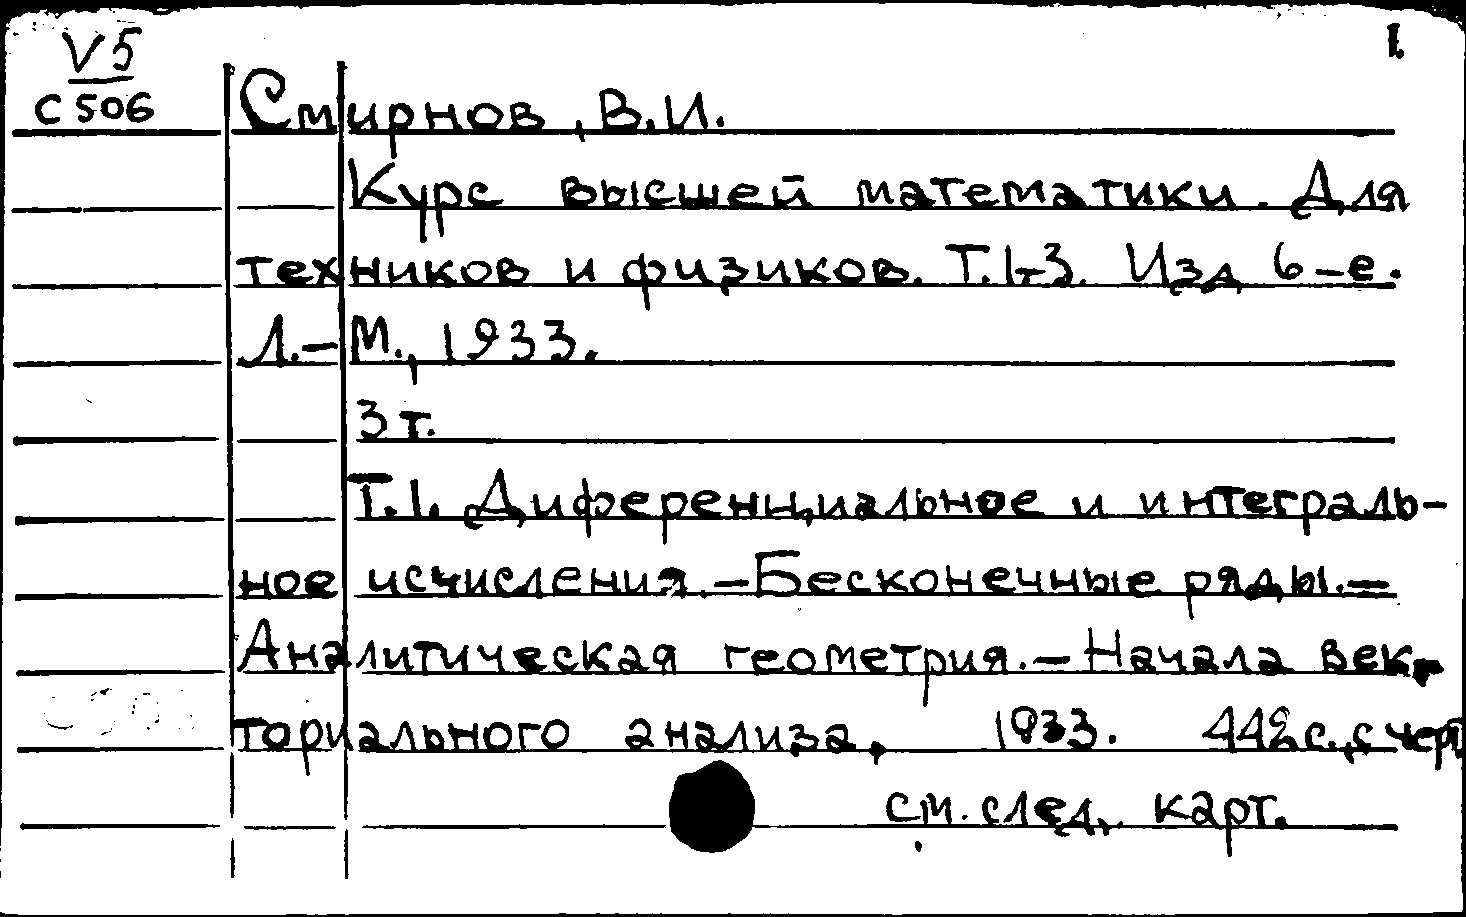 V5
I.
C 506
Смирнов, В.И.
Курс высшей математики. Для
техников и физиков. Т.1-3. Изд 6-е.
Л.-М., 1933.
3 т.
Т.1. Диференциальное и интеграль-
ное исчисления.-Бесконечные ряды.-
Аналитическая геометрия.-Начала век-
ториального анализа, 1933. 442с.,с черт
см. след. карт.